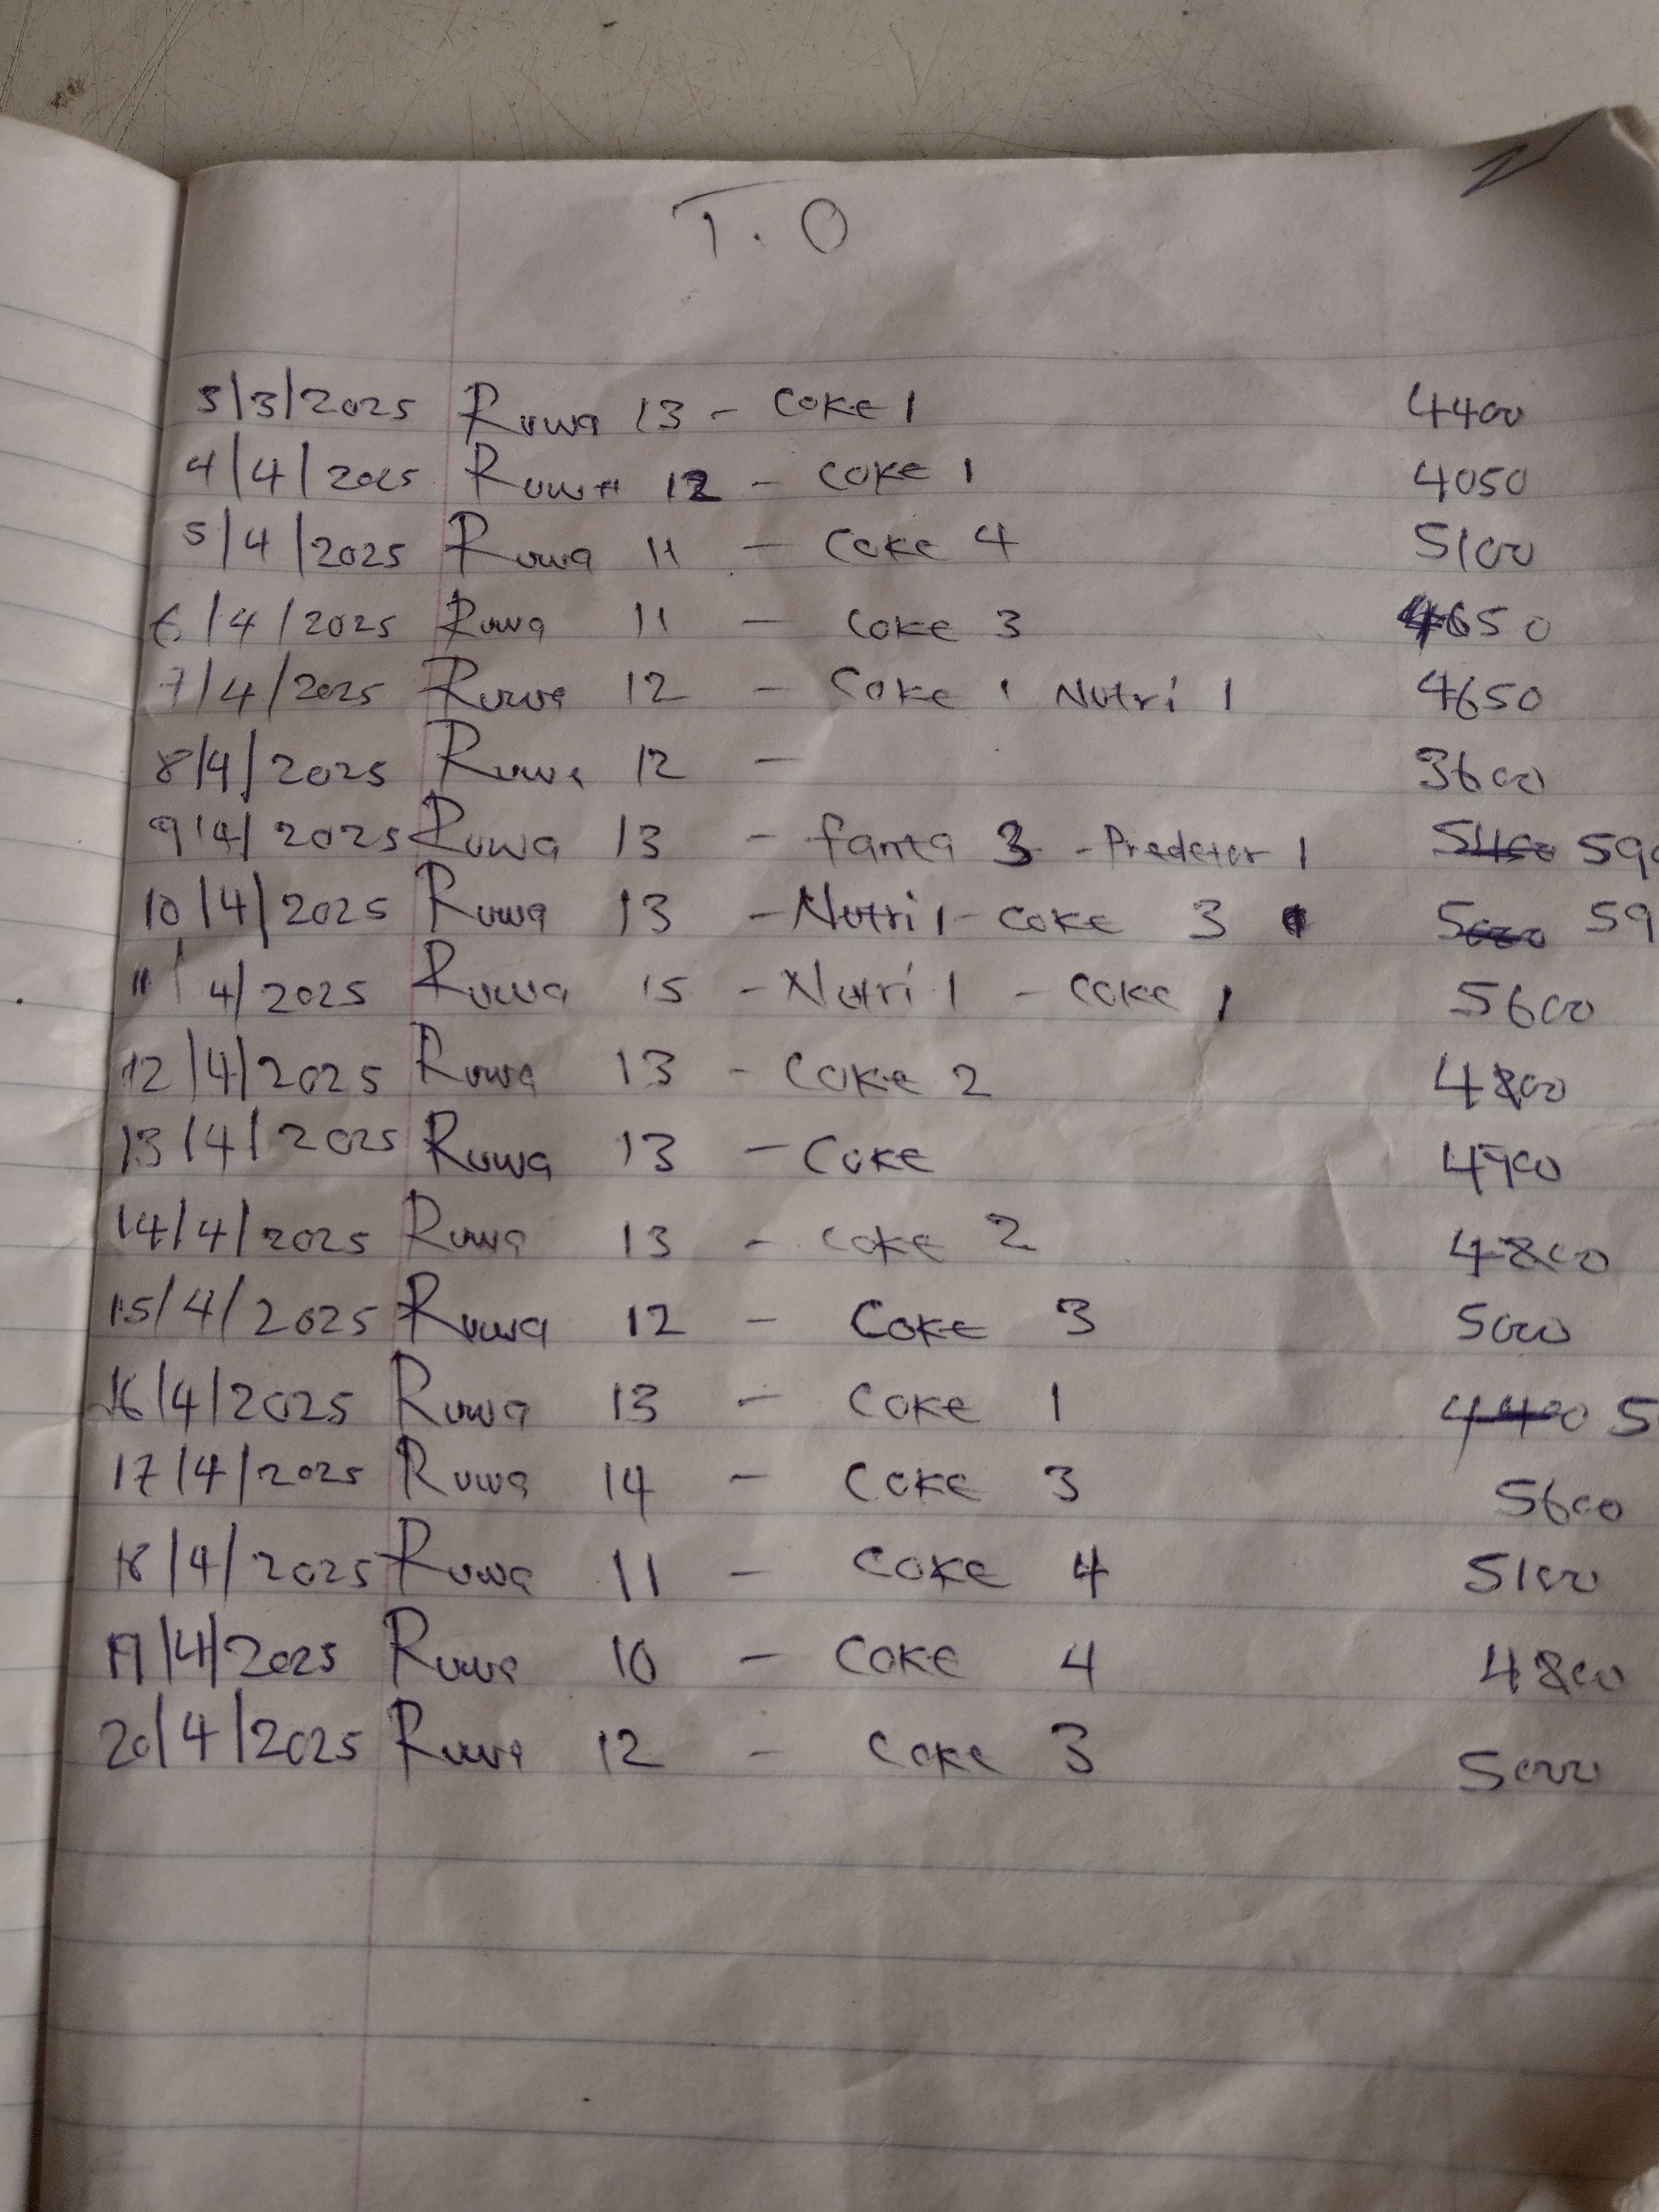 T.O
3/3/2025 Ruwa 13 - Coke 1 4400
4/4/2025 Ruwa 12 - Coke 1 4050
5/4/2025 Ruwa 11 - Coke 4 5100
6/4/2025 Ruwa 11 - Coke 3 4650
7/4/2025 Ruwa 12 - Coke 1 Nutri 1 4650
8/4/2025 Ruwa 12 - 3600
9/4/2025 Ruwa 13 - fanta 3 - Predator 1 5400 590
10/4/2025 Ruwa 13 - Nutri 1 - Coke 3 59
11/4/2025 Ruwa 15 - Nutri 1 - Coke 1 5600
12/4/2025 Ruwa 13 - Coke 2 4800
13/4/2025 Ruwa 13 - Coke 4900
14/4/2025 Ruwa 13 - Coke 2 4800
15/4/2025 Ruwa 12 - Coke 3 5000
16/4/2025 Ruwa 13 - Coke 1 4400 5
17/4/2025 Ruwa 14 - Coke 3 5600
18/4/2025 Ruwa 11 - Coke 4 5100
19/4/2025 Ruwa 10 - Coke 4 4800
20/4/2025 Ruwa 12 - Coke 3 5000